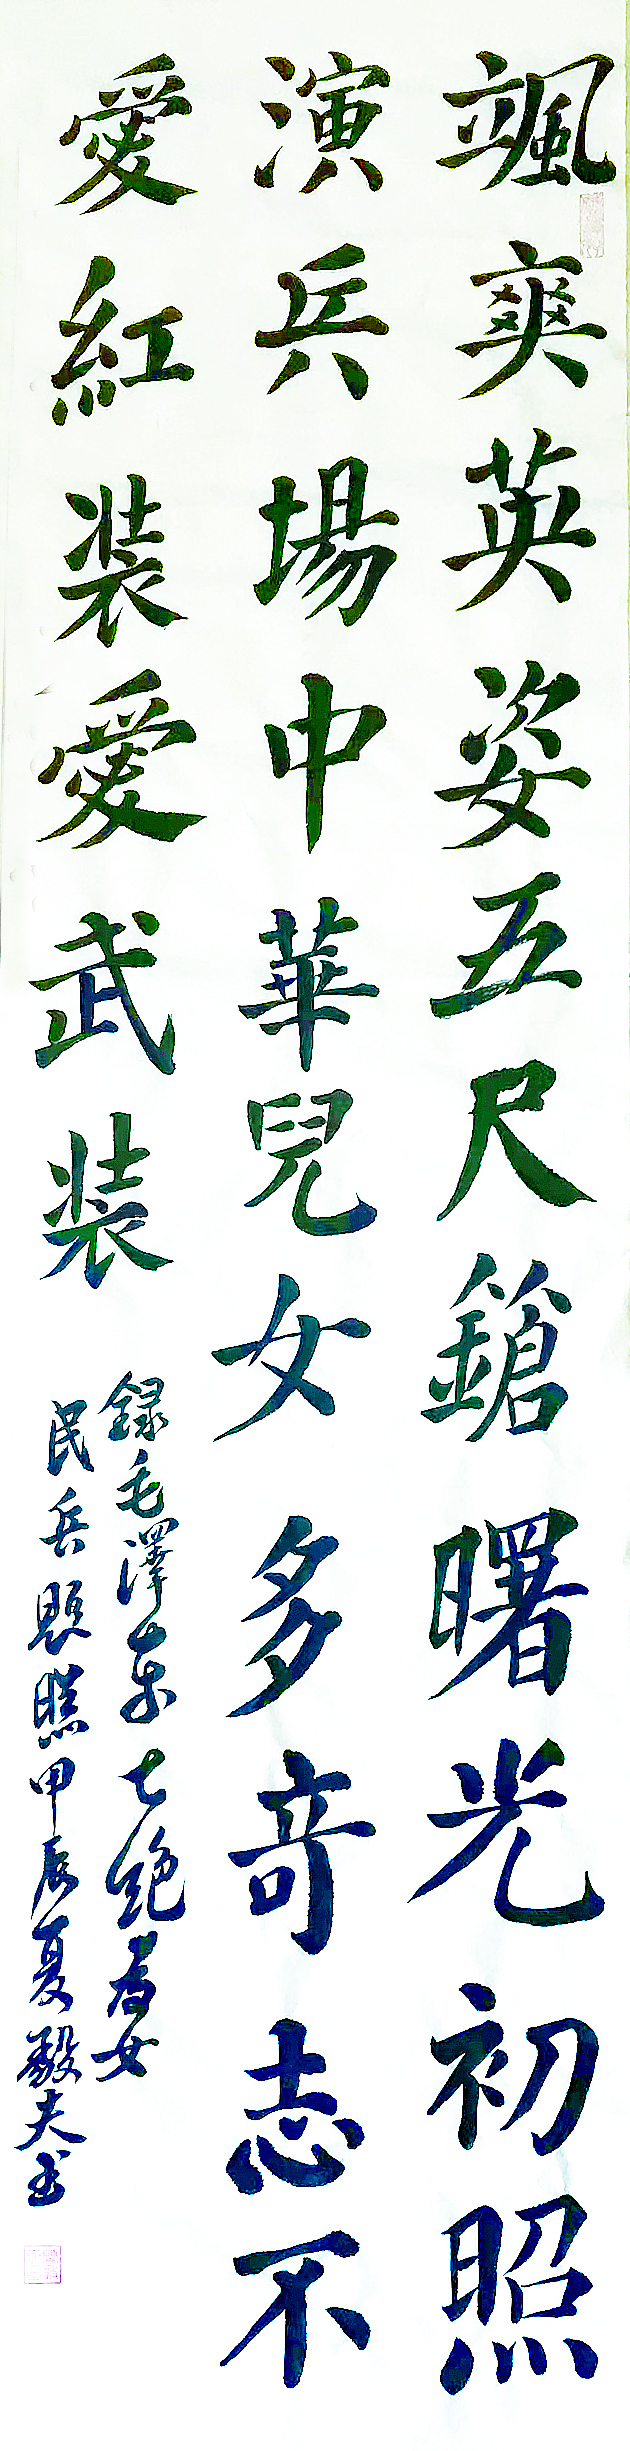 颯爽英姿五尺鎗曙光初照
演兵場中華兒女多奇志不
愛紅装愛武装
録毛澤東七絶為女
民兵題照甲辰夏毅夫书